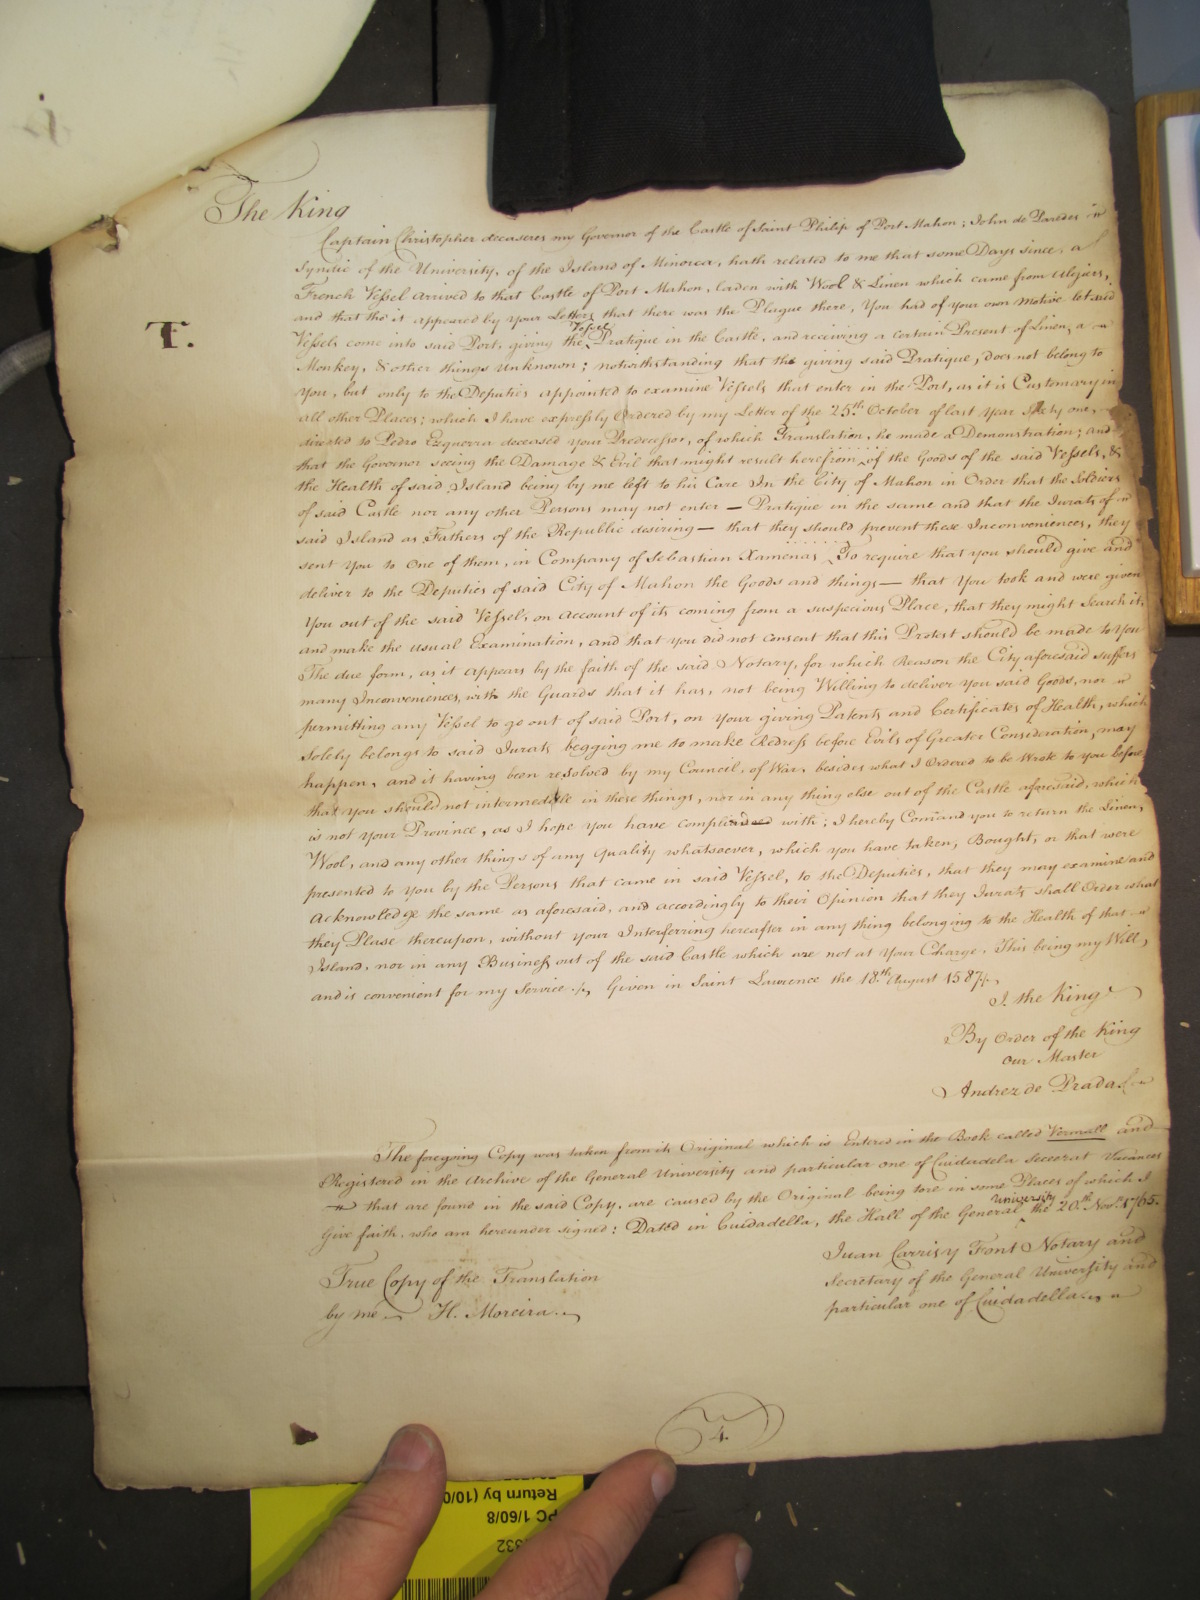 The King
Captain Christopher decaseres my Governor of the Castle of Saint Philip of Port Mahon; John de Paredes
Syndic of the University, of the Island of Minorca, hath related to me that some Days since, a
French Vessel arrived to that Castle of Port Mahon, Laden with Wool & Linen which came from Algiers,
and that tho' it appeared by your Letters that there was the Plague there, You had of your own Motive let said
T.
Vessels come into said Port, giving the Vessel Pratique in the Castle, and receiving a certain Present of Linen, a
Monkey, & other things unknown; notwithstanding that the giving said Pratique, does not belong to
you, but only to the Deputies appointed to examine Vessels that enter in the Port, as it is Customary in
all other Places; which I have expressly Ordered by my Letter of the 25th October of last Year sixty one,
directed to Pedro Ezquerra deceased your Predecessor, of which Translation, he made a Demonstration; and
that the Governor seeing the Damage & Evil that might result herefrom of the Goods of the said Vessels, &
the Health of said Island being by me left to his Care In the City of Mahon in Order that the Soldiers
of said Castle nor any other Persons may not enter — Pratique in the same and that the Jurats of
said Island as Fathers of the Republic desiring — that they should prevent these Inconveniences, they
sent You to One of them, in Company of Sebastian Xamenas To require that you should give and
deliver to the Deputies of said City of Mahon the Goods and things — that You took and were given
You out of the said Vessel, on Account of its coming from a suspecious Place, that they might Search it,
and make the usual Examination, and that you did not consent that this Protest should be made to You
The due form, as it appears by the faith of the said Notary, for which Reason the City aforesaid suffers
many Inconveniences, with the Guards that it has, not being Willing to deliver You said Goods, nor
permitting any Vessel to go out of said Port, on Your giving Patents and Certificates of Health, which
Solely belongs to said Jurats begging me to make Redress before Evils of Greater Consideration, may
happen, and it having been resolved by my Council, of War, besides what I Ordered to be Wrote to You before
that you should not intermeddle in these things, nor in any thing else out of the Castle aforesaid, which
is not your Province, as I hope you have complied with; I hereby Comand you to return the Linen,
Wool, and any other things of any Quality whatsoever, which you have taken, Bought, or that were
presented to You by the Persons that came in said Vessel, to the Deputies, that they may examine and
Acknowledge the same as aforesaid, and accordingly to their Opinion that they Jurats shall Order what
they Please thereupon, without your Interferring hereafter in any thing belonging to the Health of that
Island, nor in any Business out of the said Castle which are not at Your Charge. This being my Will,
and is convenient for my Service Given in Saint Lawrence the 18th August 1587
I. the King
By Order of the King
our Master
Andrez de Prada
The foregoing Copy was taken from its Original which is Entered in the Book called Vermall and
Registered in the Archive of the General University and particular one of Cuidadela Vacances
that are found in the said Copy, are caused by the Original being tore in some Places of which I
Give faith, who am hereunder signed: Dated in Cuidadella, the Hall of the General University the 20th Novr. 1765.
Juan Carris y Font Notary and
Secretary of the General University and
particular one of Cuidadella
True Copy of the Translation
by me H. Moreira
4.
Return by (10/0
PC 1/60/8
332